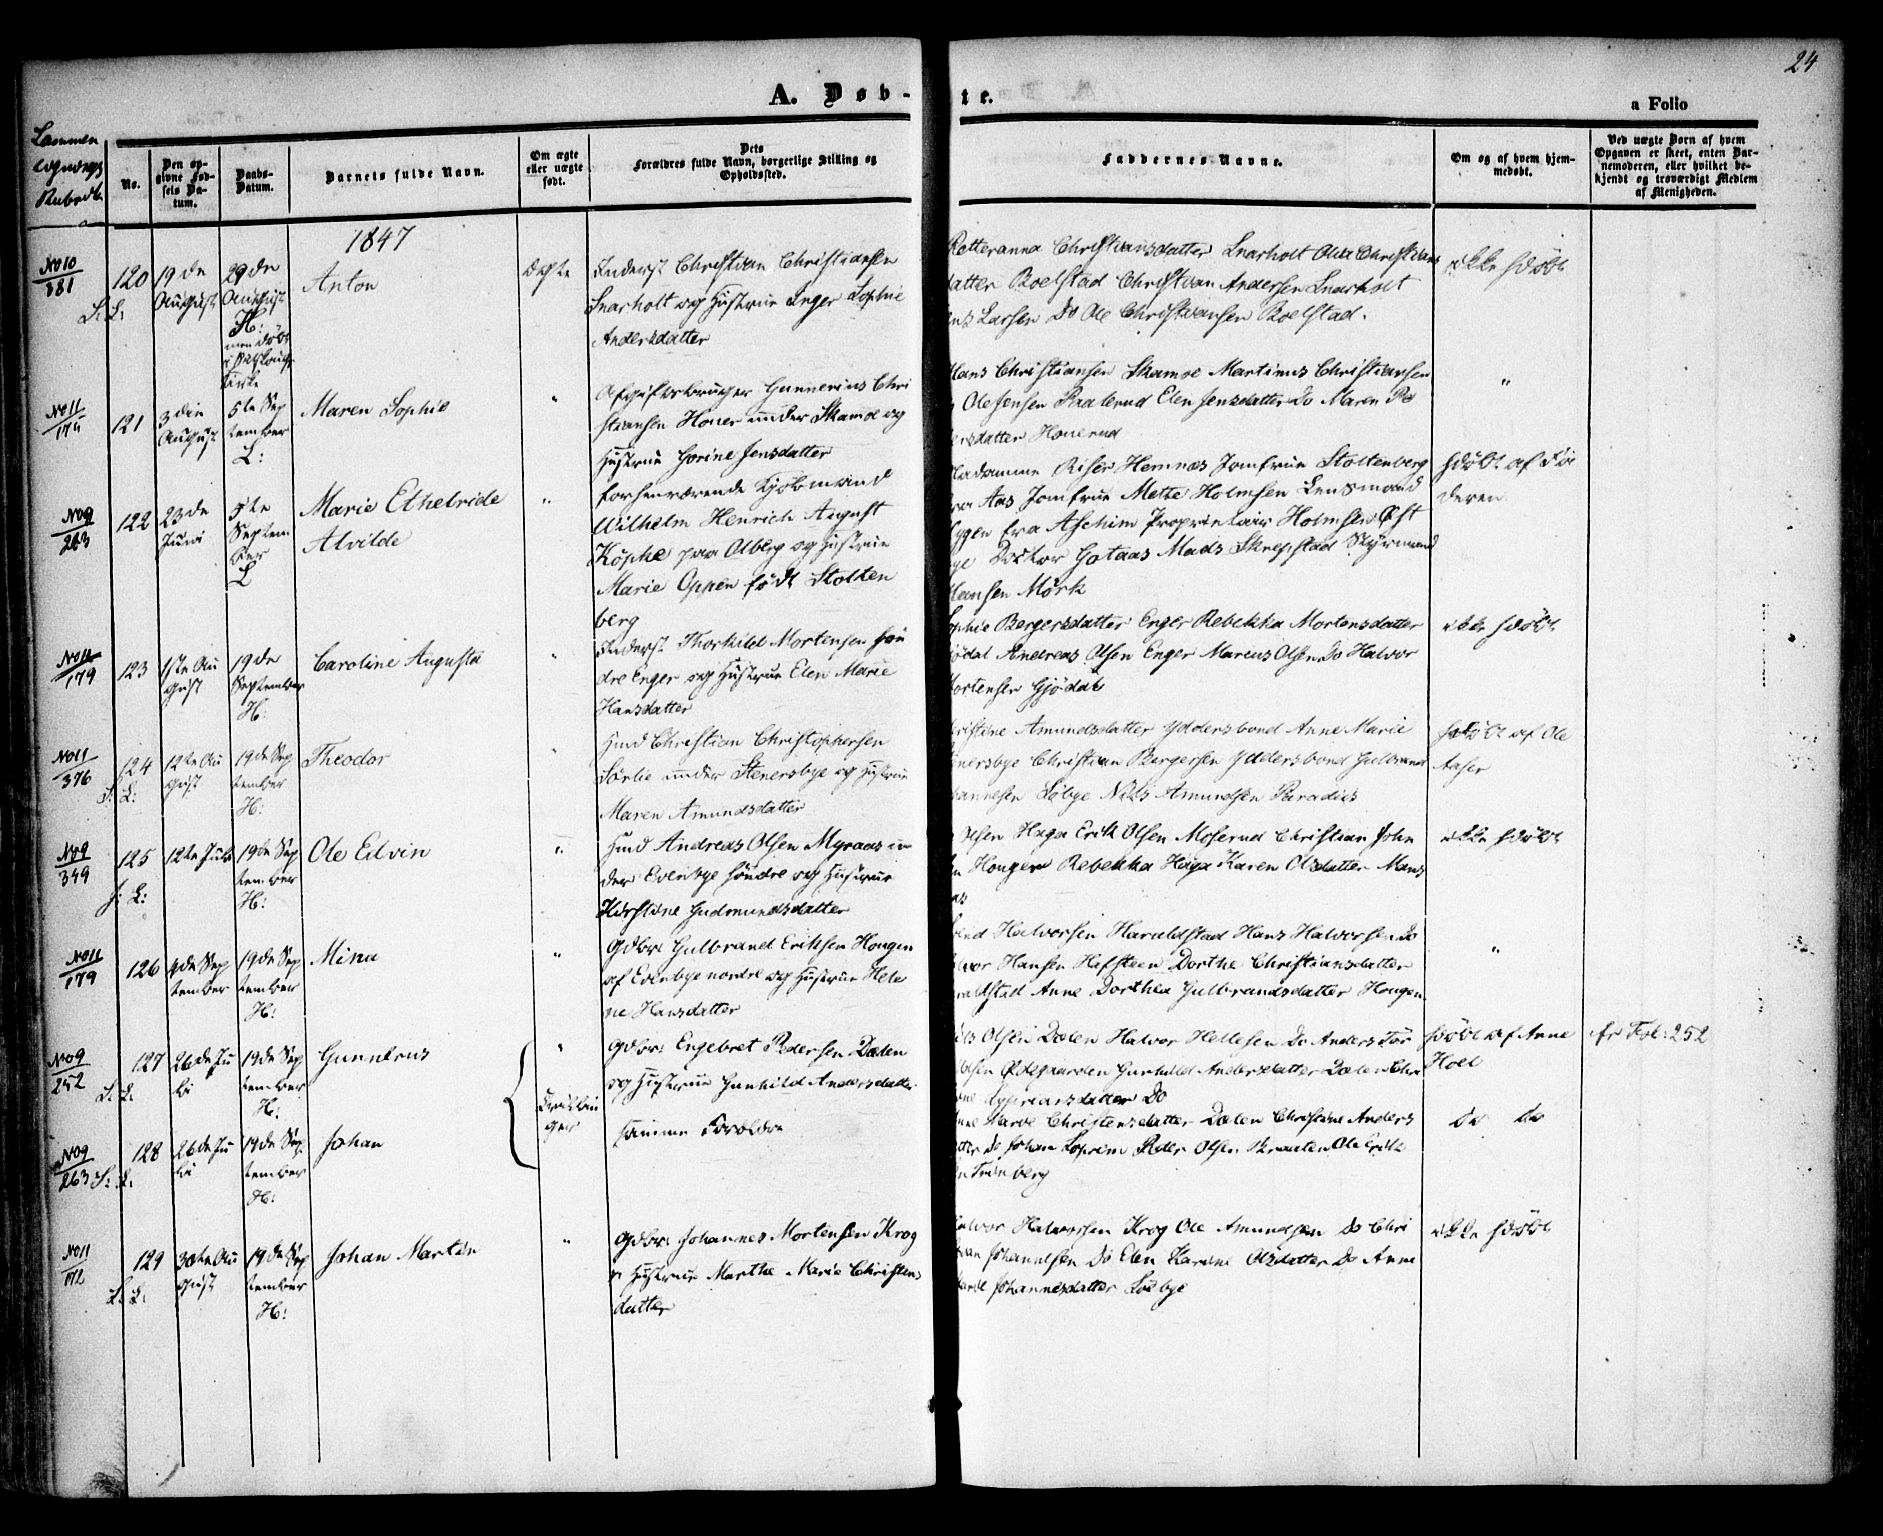 24
A. Døb-te.
a Folio
No.
Den opgivne Fødsels Datum.
Daabs-Datum.
Barnets fulde Navn.
Om ægte eller uægte født.
Dets Forældres fulde Navn, borgerlige Stilling og Opholdssted.
Faddernes Navne.
Om og af hvem hjemmedøbt.
Ved uægte Børn af hvem Opgaven er skeet, enten Barnemoderen, eller hvilket bekjendt og troværdigt Medlem af Menigheden.
1847
No 10
381
120
19de August
29de August
H:
Anton
Ægte
Inderst Christian Christiansen
Snarholt og Hustrue Inger Sophie
Andersdatter
Christiansdatter Snarholt
datter Roelstad Christian Andersen Snarholt
Larsen Do Ole Christiansen Roelstad.
ikke hdøbt
No 11
121
3die August
5te September
L:
Maren Sophie
"
Gunnerius Chri
stiansen Houer under Skamoe og
Hustrue Gorine Jensdatter
Hans Christiansen Skamoe Martinus Christiansen
Ole Jensen Paalerud Elen Jensdatter Do Maren Pe
dersdatter Houerud
"
No 9
263
122
23de Juni
5te September
L
Marie Ethelride
Alvilde
"
forhenværende Kjøbmand
Wilhelm Henrich August
Köpke paa Olberg og Hustrue
Marie Oppen født Stolten
berg
Madamme Riser Hemnæs Jomfrue Stoltenberg
fra Aas Jomfrue Mette Holmsen Lensmand
Eva Aschim Proprietair Holmsen Øst
bye Doctor Gotaas Mads Skrepstad Styrmand
Hansen Mörk
hdøbt af Fa
deren
179
123
1ste August
19de September
H:
Caroline Augusta
"
Inderst Thorkild Mortensen Søn
dre Enger og Hustrue Elen Marie
Hansdatter
Sophie Bergersdatter Enger Rebekka Mortensdatter
Gjødal Andreas Olsen Enger Marcus Olsen Do Halvor
Mortensen Gjødal
ikke hdøbt
No 11
376
124
12te August
19de September
H:
Theodor
"
Hmd Christian Christophersen
Sørlie under Stenersbye og Hustrue
Maren Amundsdatter
Amundsdatter Yddersbond Anne Marie
Stenersbye Christian Bergersen Yddersbond Gulbrand
Johannesen Løbye Nils Amundsen Paradiis
hdøbt af Ole
Aaser
No 9
349
125
12te Juli
19de September
H:
Ole Edvin
"
Hmd Andreas Olsen Myraas un
der Evenbye søndre og Hustrue
Kirstine Gudmundsdatter
Olsen Haga Erik Olsen Moserud Christian John
sen Hougen Rebekka Haga Karen Olsdatter Mans
aas
ikke hdøbt
No 11
179
126
9de September
19de September
H:
Mina
"
Gdbr: Gulbrand Eriksen Hougen
af Evenbye nordre og Hustrue Hele
ne Hansdatter
Halvorsen Haraldstad Hans Halvorsen Do
Halvor Hansen Hefsteen Dorthe Christiansdatter
Haraldstad Anne Dorthea Gulbrandsdatter Hougen
"
No 9
252
127
26de Juli
19de September
H:
Gunnerus
"
Tvillinger
Gdbr: Engebret Pedersen Dælen
og Hustrue Gunhild Andersdatter
Nils Olsen Dælen Halvor Hellesen Do Anders Tor
Olsen Ødegaarden Gunhild Andersdatter Dælen Chri
Do
hdøbt af Anne
Hoel
cfr Fol: 252
No 9
263
128
26de Juli
19de September
H:
Johan
samme Forældre
Marie Christensdatter Dælen Christine Anders
datter Do Johan Peder Olsen Braaten Ole Erik
sen Tronberg
do do
No 11
172
129
30te August
19de September
H:
Johan Martin
"
Gdbr: Johannes Mortensen Krog
og Hustrue Marthe Marie Christens
datter
Halvor Halvorsen Krog Ole Amundsen Do Chri
stian Johannesen Do Elen Karine Olsdatter Do Anne
Marie Johannesdatter Løebye
ikke hdøbt